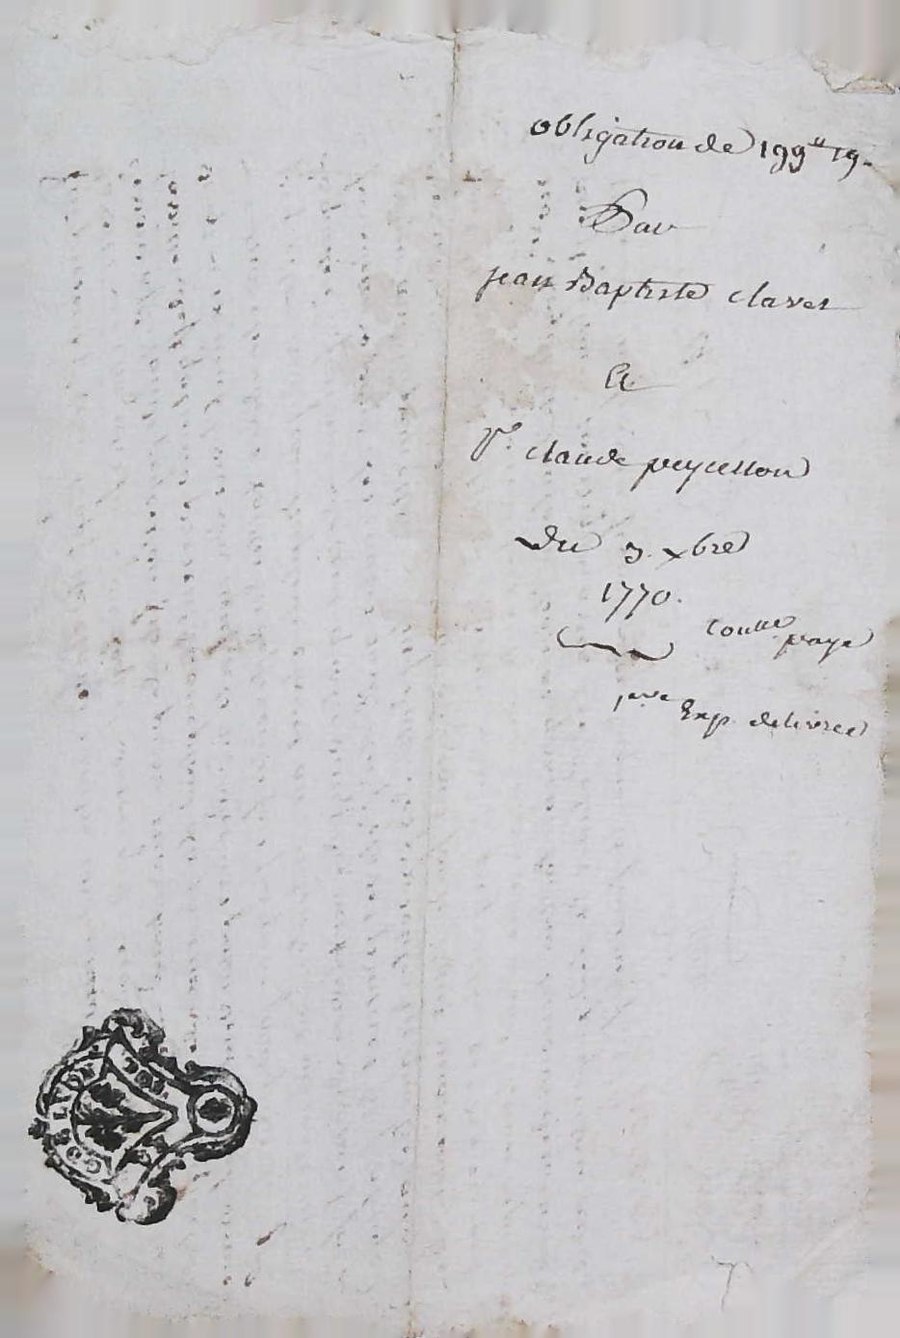 obligation de 199ᵗᵗ 19ˢ
Par
jean Baptiste claret
A
Sʳ claude peycellon
Du 3. xbre
1770.
Coutte paye
pʳᵉ Exp. delivree
G DE LYON